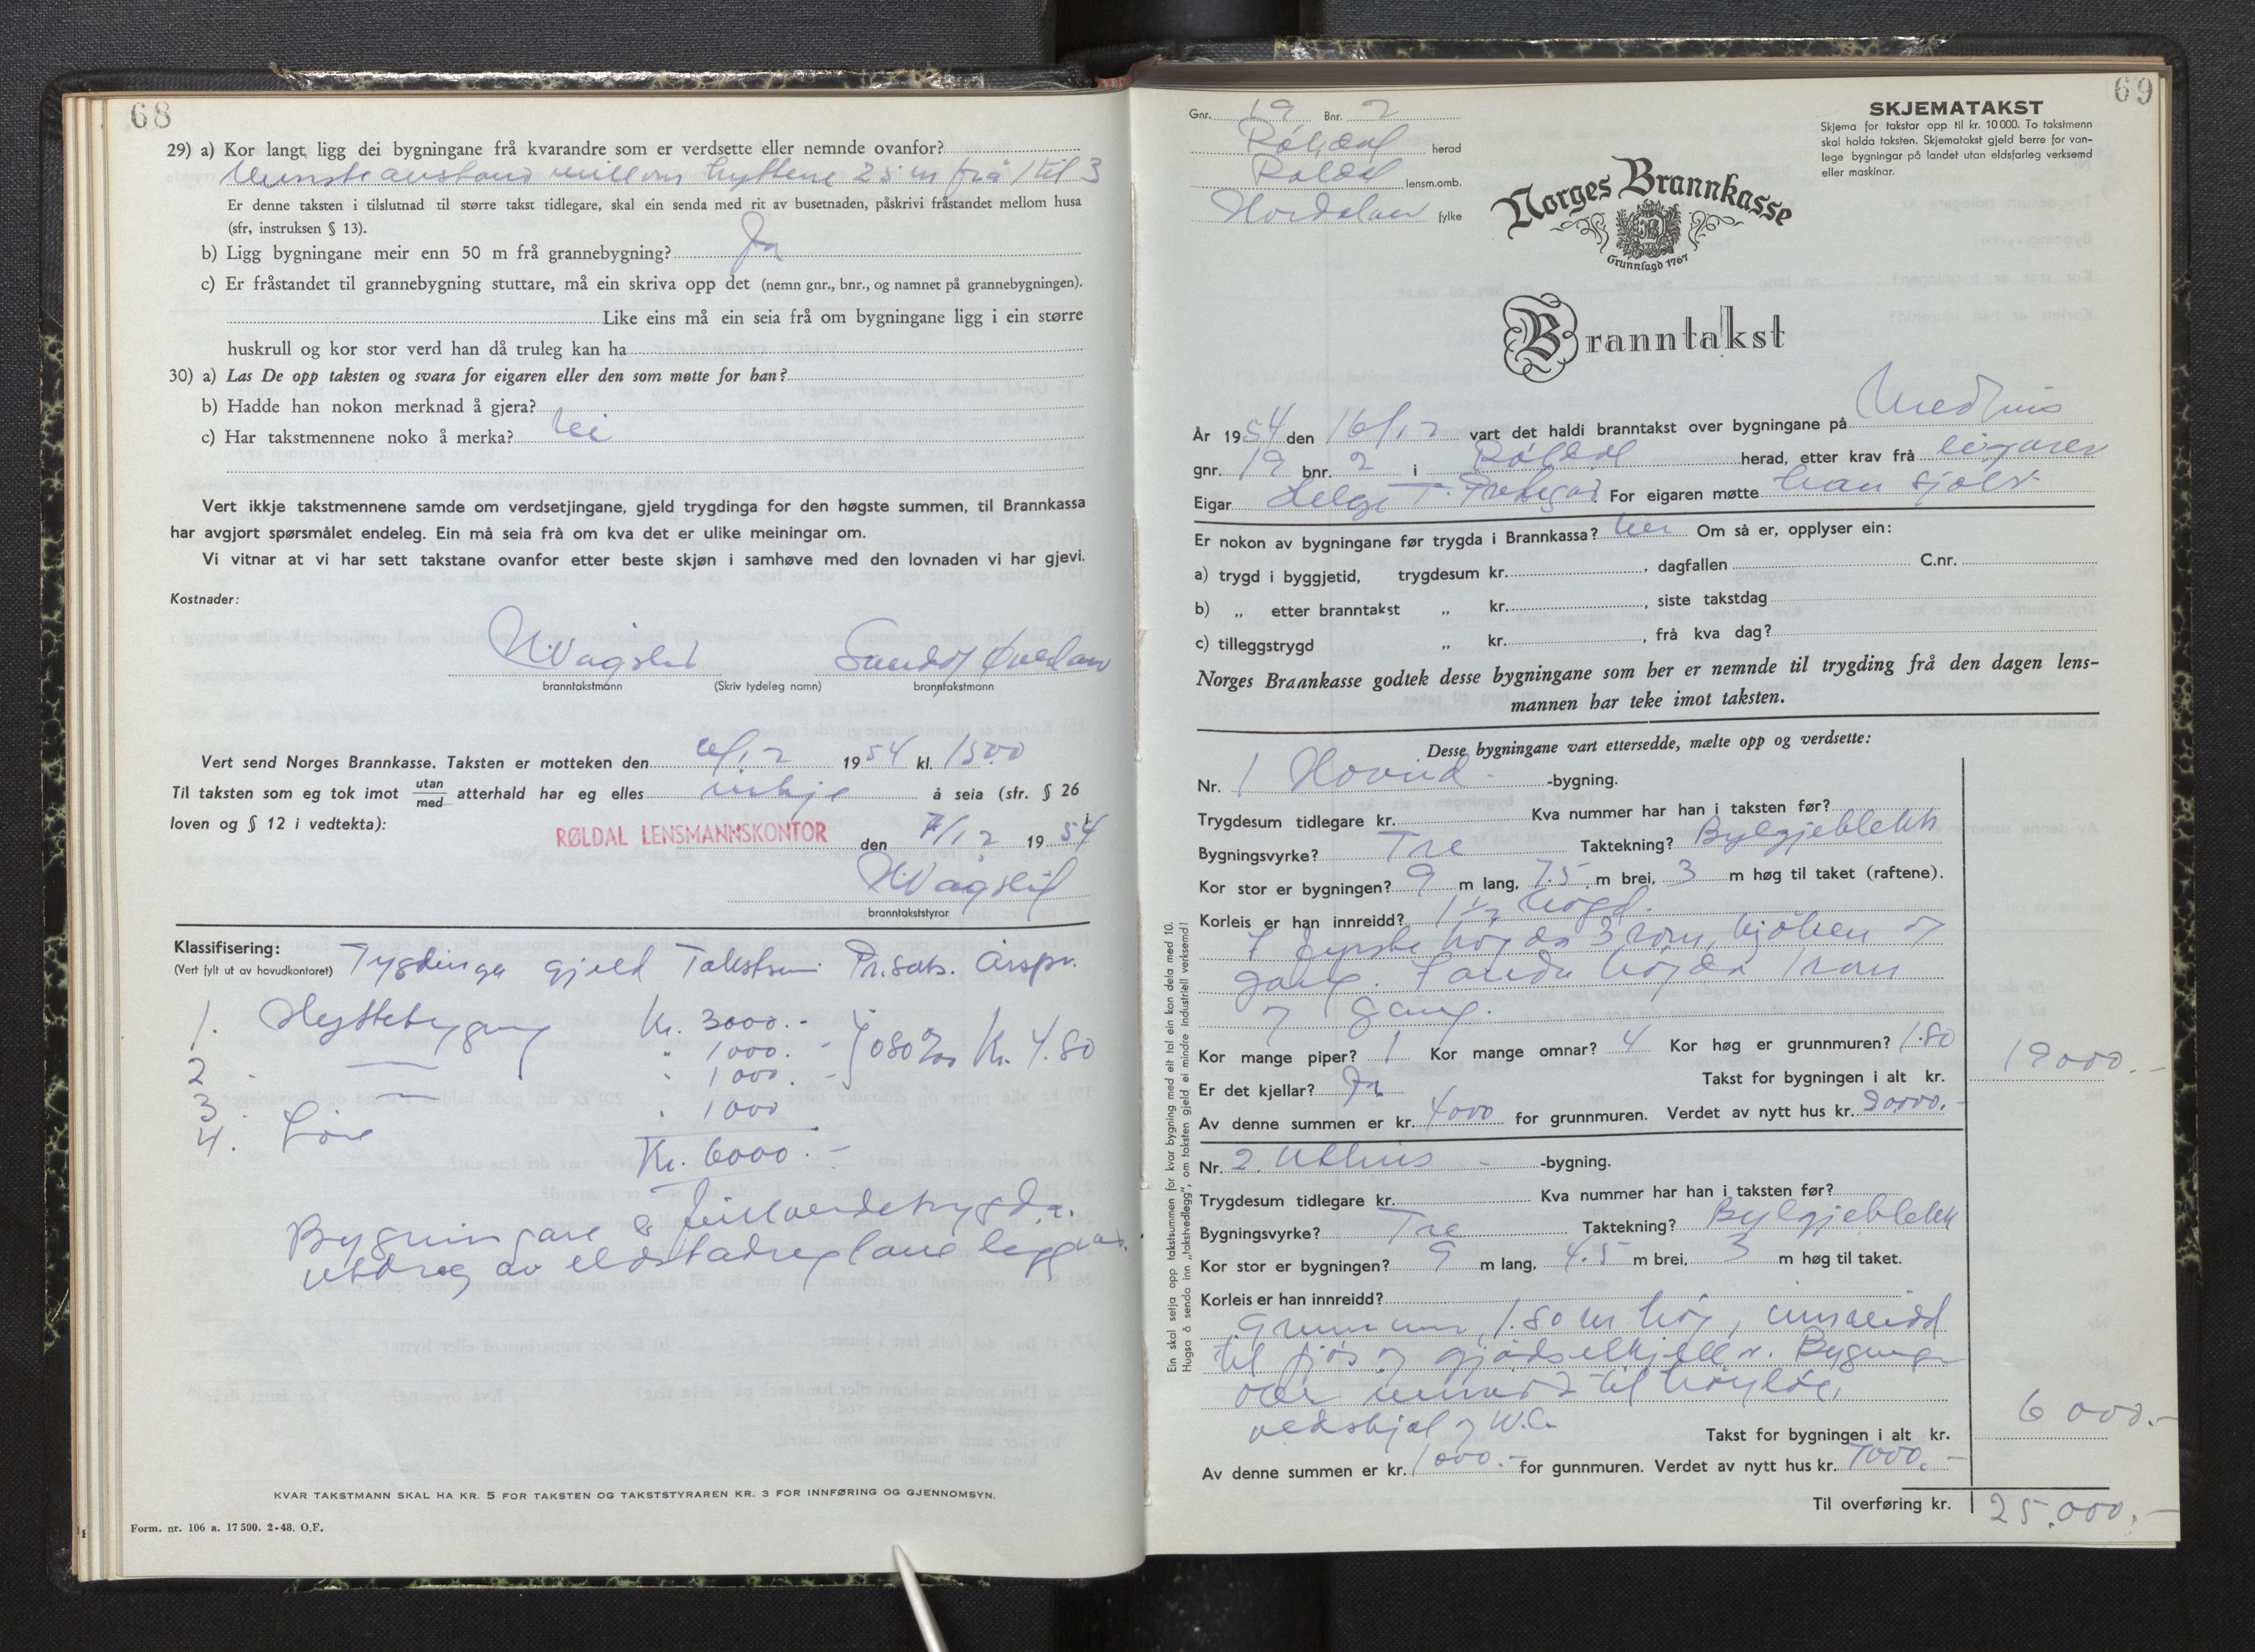 68
29) a) Kor langt ligg dei bygningane frå kvarandre som er verdsette eller nemnde ovanfor?
Minsteavstand millom hyttene 25 m frå 1 til 3
Er denne taksten i tilslutnad til større takst tidlegare, skal ein senda med rit av busetnaden, påskrivi fråstandet mellom husa
(sfr, instruksen § 13).
b) Ligg bygningane meir enn 50 m frå grannebygning? Ja
c) Er fråstandet til grannebygning stuttare, må ein skriva opp det (nemn gnr., bnr., og namnet på grannebygningen).
Like eins må ein seia frå om bygningane ligg i ein større
huskrull og kor stor verd han då truleg kan ha
30) a) Las De opp taksten og svara for eigaren eller den som møtte for han?
b) Hadde han nokon merknad å gjera?
c) Har takstmennene noko å merka? Nei
Vert ikkje takstmennene samde om verdsetjingane, gjeld trygdinga for den høgste summen, til Brannkassa
har avgjort spørsmålet endeleg. Ein må seia frå om kva det er ulike meiningar om.
Vi vitnar at vi har sett takstane ovanfor etter beste skjøn i samhøve med den lovnaden vi har gjevi.
Kostnader:
branntakstmann (Skriv tydeleg namn) branntakstmann
Vert send Norges Brannkasse. Taksten er motteken den 6/12 1954 kl. 1500
Til taksten som eg tok imot utan/med atterhald har eg elles inkje å seia (sfr. § 26
loven og § 12 i vedtekta):
RØLDAL LENSMANNSKONTOR den 7/12 1954
branntakststyrar
Klassifisering:
(Vert fylt ut av hovudkontoret) Tygdinga gjeld Takstsum Pr.sats. Årspr.
1. Hyttebygning Kr. 3000.- 080 Kr. 4.80
2 - — " 1000.-
3 - — " 1000.-
4. Löe " 1000
Kr. 6000.-
Bygningane er fullverdetrygda.
utdrag av eldstadreglane legg
KVAR TAKSTMANN SKAL HA KR. 5 FOR TAKSTEN OG TAKSTSTYRAREN KR. 3 FOR INNFØRING OG GJENNOMSYN.
Form. nr. 106 a. 17 500. 2-48. O.F.
69
Gnr. 19 Bnr. 2
Röldal herad
Röldal lensm.omb.
Hordaland fylke
SKJEMATAKST
Skjema for takstar opp til kr. 10 000. To takstmenn
skal halda taksten. Skjematakst gjeld berre for van-
lege bygningar på landet utan eldsfarleg verksemd
eller maskinar.
Norges Brannkasse
Grunnlagd 1767
Branntakst
År 1954 den 16/12 vart det haldi branntakst over bygningane på
gnr. 19 bnr. 2 i Röldal herad, etter krav frå eigaren
Eigar Helge T. For eigaren møtte han sjölv
Er nokon av bygningane før trygda i Brannkassa? Nei Om så er, opplyser ein:
a) trygd i byggjetid, trygdesum kr. , dagfallen C.nr.
b) „ etter branntakst „ kr. , siste takstdag
c) tilleggstrygd „ kr. , frå kva dag?
Norges Brannkasse godtek desse bygningane som her er nemnde til trygding frå den dagen lens-
mannen har teke imot taksten.
Desse bygningane vart ettersedde, mælte opp og verdsette:
Nr. 1 Hovud- -bygning.
Trygdesum tidlegare kr. Kva nummer har han i taksten før?
Bygningsvyrke? Tre Taktekning? Bylgjeblekk
Kor stor er bygningen? 9 m lang, 7.5 m brei, 3 m høg til taket (raftene).
Korleis er han innreidd? 1 1/2 högd.
I fyrste högda 3 rom, kjöken og
gang. I andre högda 1 rom
og gang.
Kor mange piper? 1 Kor mange omnar? 4 Kor høg er grunnmuren? 1.80
Er det kjellar? Ja Takst for bygningen i alt kr. 19000.-
Av denne summen er kr. 4000 for grunnmuren. Verdet av nytt hus kr. 20000.-
Nr. 2. Uthus - -bygning.
Trygdesum tidlegare kr. Kva nummer har han i taksten før?
Bygningsvyrke? Tre Taktekning? Bylgjeblekk
Kor stor er bygningen? 9 m lang, 4.5 m brei, 3 m høg til taket.
Korleis er han innreidd?
Grunnmur 1.80 m hög, innreidd
til fjös og gjödselkjellar. Bygningen
over innreidd til höylöe,
vedskjol og W.C.
Takst for bygningen i alt kr. 6000.-
Av denne summen er kr. 1000.- for gunnmuren. Verdet av nytt hus kr. 7000.-
Til overføring kr. 25.000.-
Ein skal setja opp takstsummen for kvar bygning med eit tal ein kan dela med 10.
Hugsa å senda inn „takstvedlegg", om taksten gjeld ei mindre industriell verksemd!